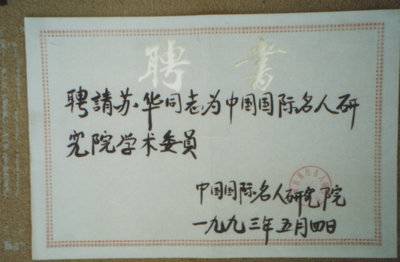 聘书
聘請苏华同老为中国国际名人研
究院学术委員
中国国际名人研究院
一九九三年五月四日